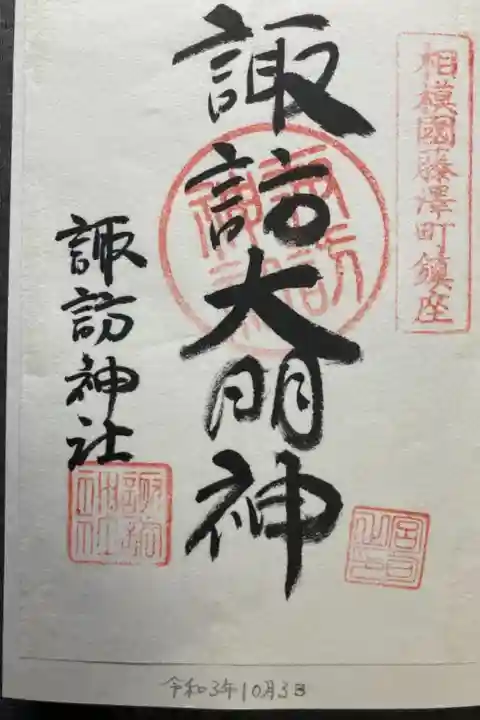 相模國藤澤町鎮座
諏訪大明神
諏訪神社
宮司之印
令和3年10月3日